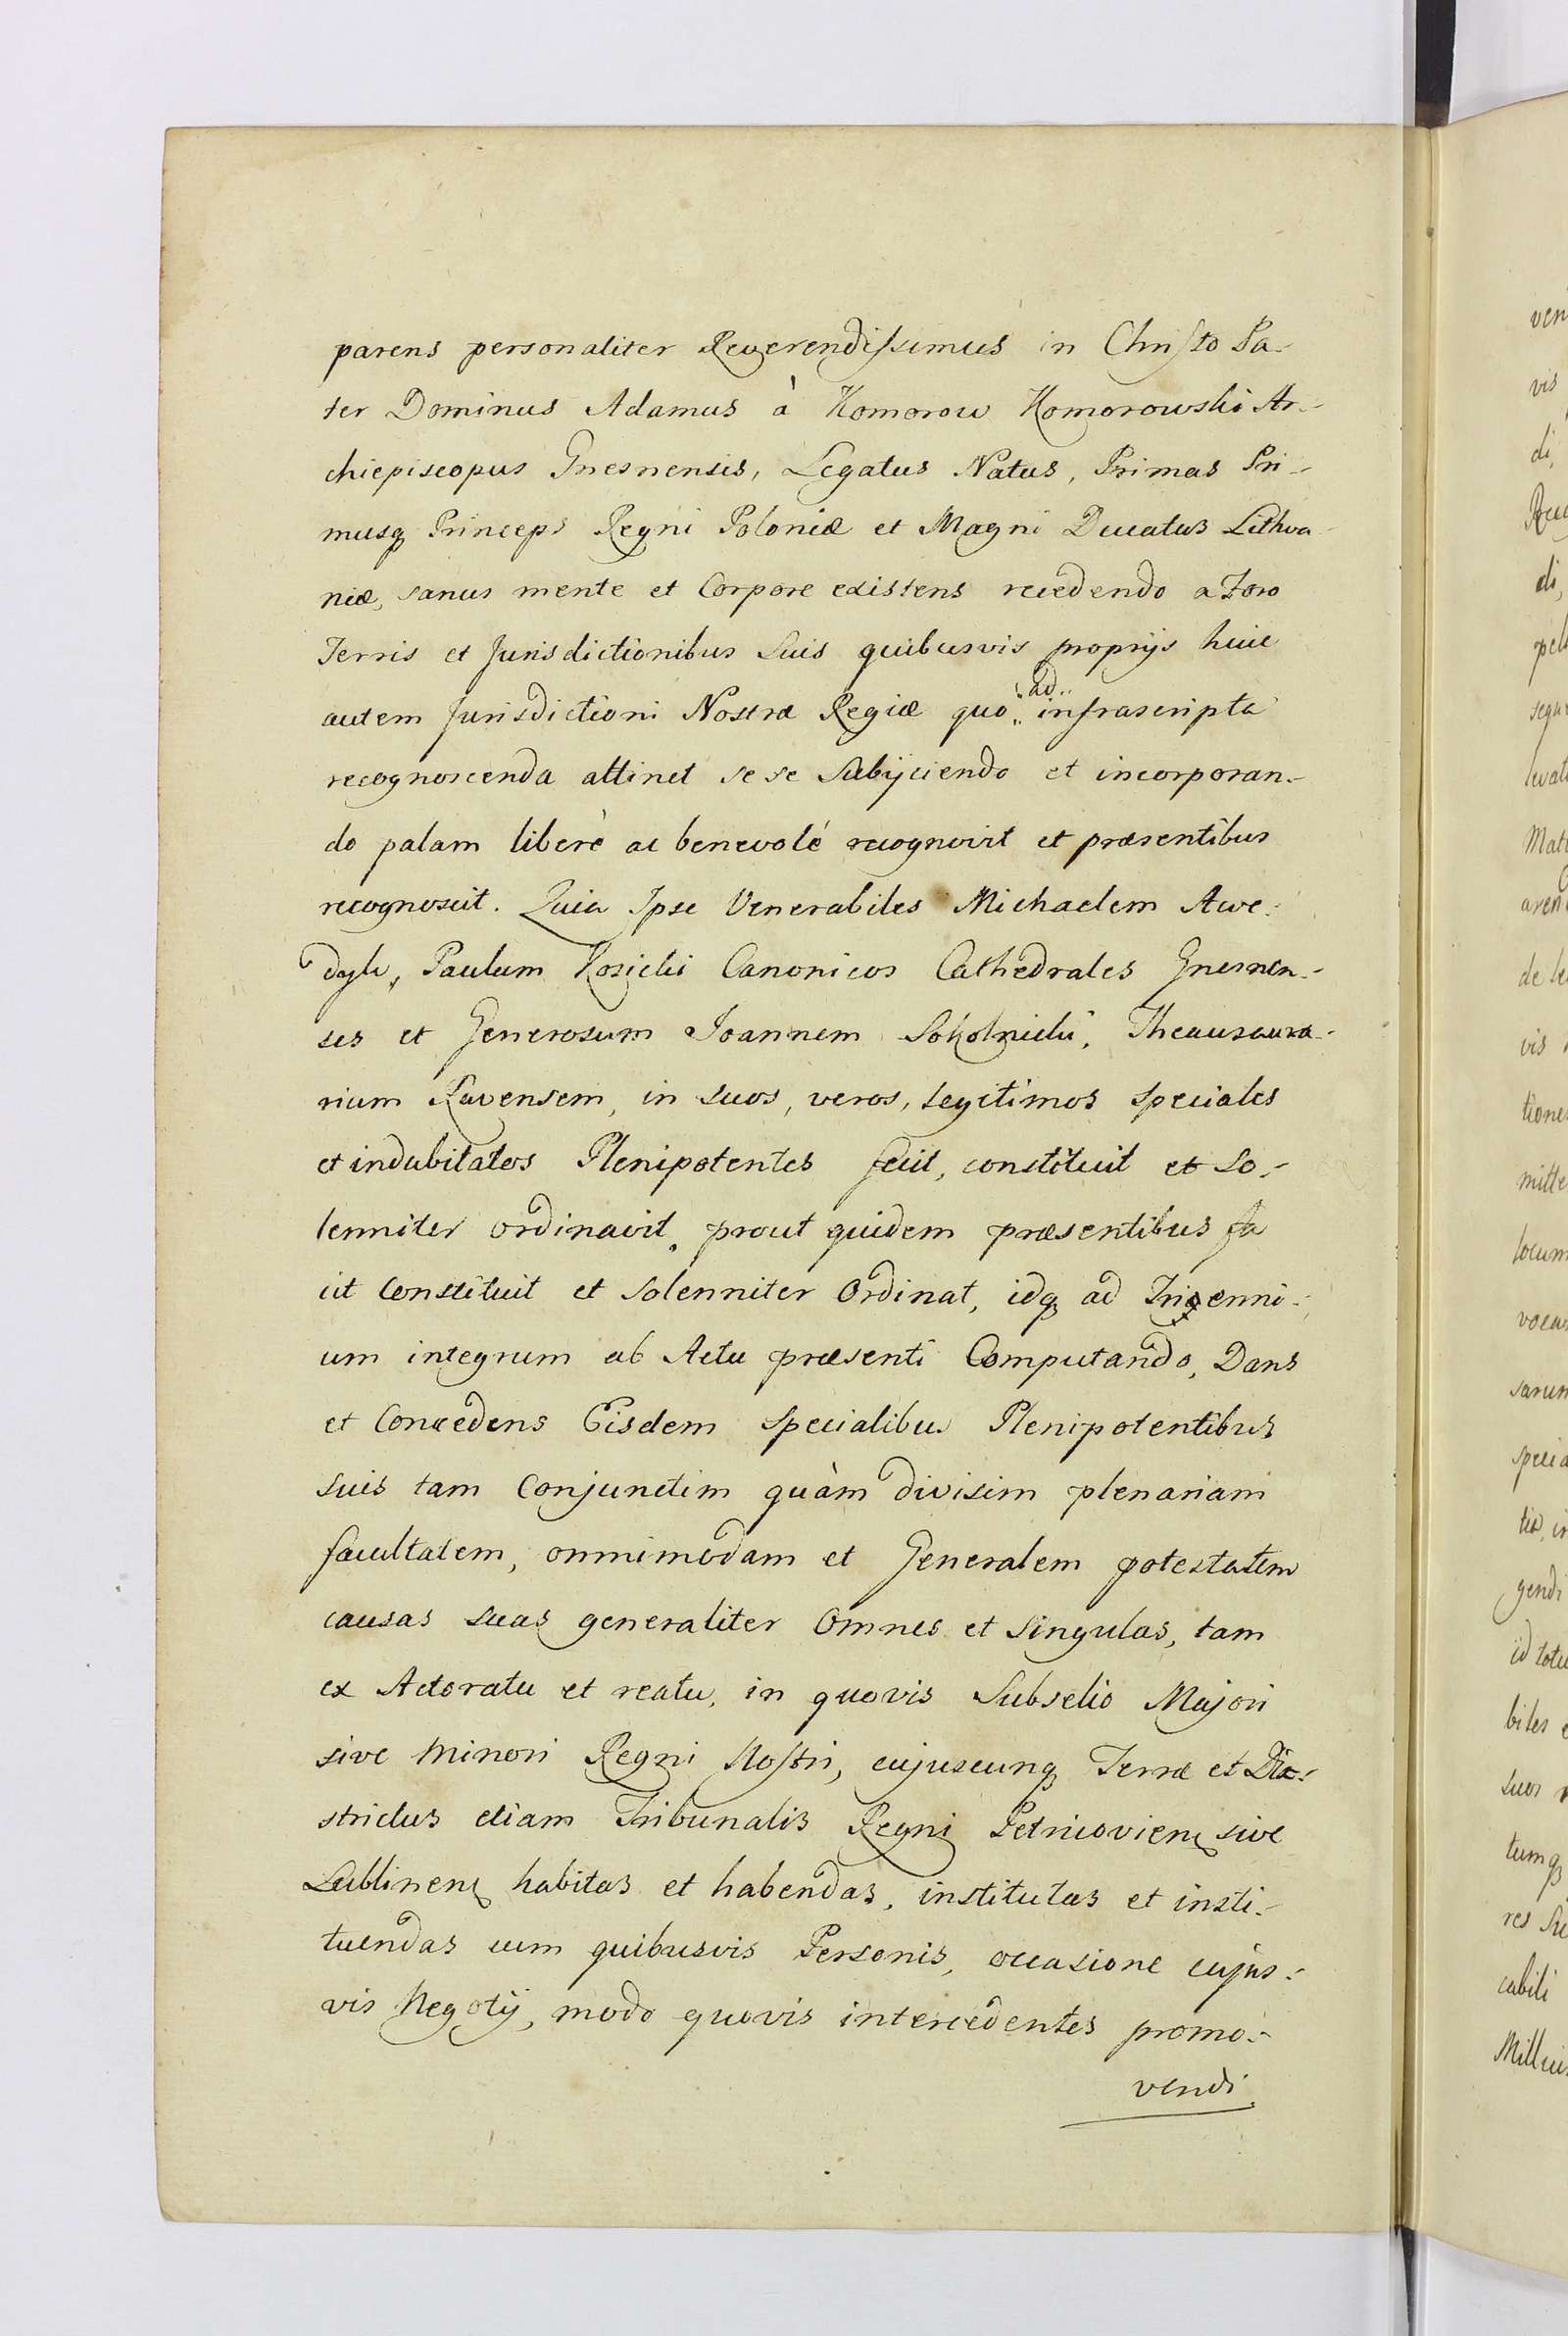 parens personaliter Reverendissimus in Christo Pa-
ter Dominus Adamus à Komorow Komorowski Ar-
chiepiscopus Gnesnensis, Legatus Natus, Primas Pri-
musq Princeps Regni Poloniæ et Magni Ducatus Lithva
niæ, sanus mente et Corpore existens recedendo a Foro
Terris et Jurisdictionibus Suis quibusvis proprijs huic
autem Jurisdictioni Nostræ Regiæ quo ad infrascripta
recognoscenda attinet se se Subijciendo et incorporan-
do palam liberè ac benevolé recognovit et præsentibus
recognoscit. Quia Ipse Venerabiles Michaelem Awe-
dyk, Paulum Kosicki Canonicos Cathedrales Gnesnen-
ses et Generosum Joannem Sokolnicki, Theausaura-
rium Ravensem, in suos, veros, legitimos speciales
et indubitatos Plenipotentes fecit, constituit et So-
lenniter ordinavit, prout quidem præsentibus fa
cit Constituit et Solenniter Ordinat, idq ad Triennni-
um integrum ab Actu præsenti Computando, Dans
et Concedens Eisdem Specialibus Plenipotentibus
suis tam Conjunctim quàm divisim plenariam
facultatem, omnimodam et Generalem potestatem
causas suas generaliter Omnes et Singulas, tam
ex Actoratu et reatu, in quovis Subselio Majori
sive Minori Regni Nostri, cujuscunq Terræ et Di-
strictus etiam Tribunalis Regni Petricovien sive
Lublinen habitas et habendas, institutas et insti-
tuendas cum quibusvis Personis, occasione cujus-
vis Negotij, modo quovis intercedentes promo-
vendi
ven
vis
di,
di,
vis
tione
mitte
locum
sarun
gendi
id totu
suos
tumq
cabili